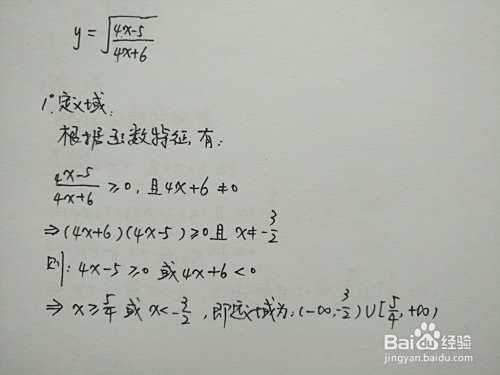 y = √((4x-5)/(4x+6))
1°.定义域:
根据函数特征,有:
(4x-5)/(4x+6) ≥0, 且4x+6 ≠0
⇒(4x+6)(4x-5)≥0且 x≠-3/2
则: 4x-5≥0 或4x+6<0
⇒ x≥5/4 或 x<-3/2 , 即定义域为:(-∞,-3/2)∪[5/4,+∞)
Baidu经验
jingyan.baidu.com